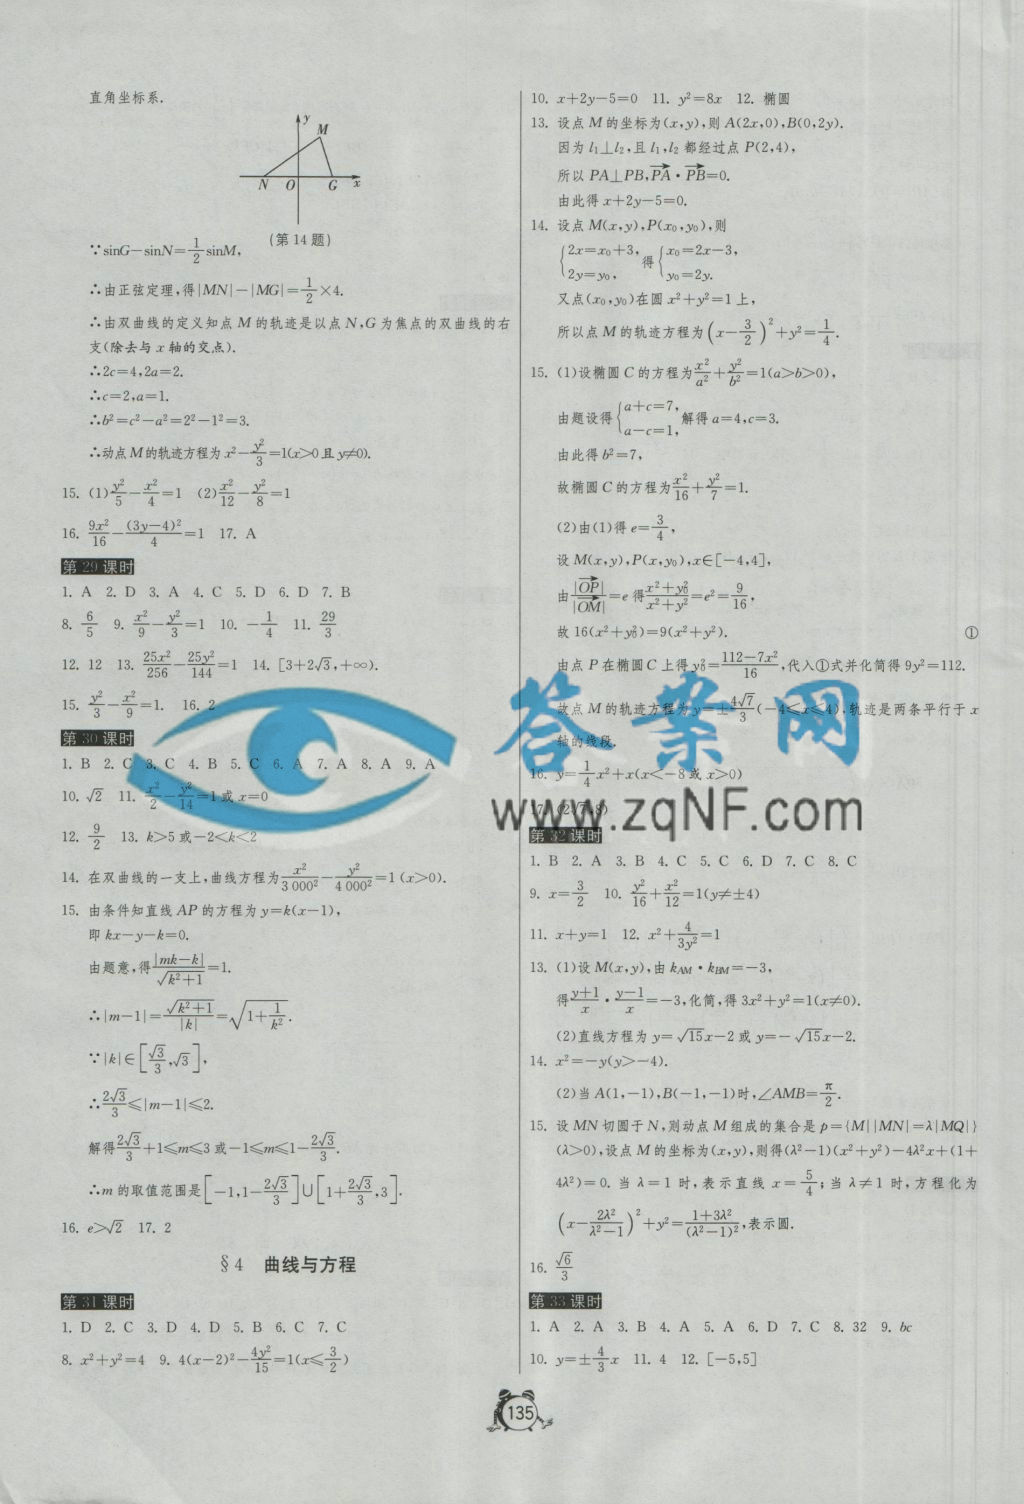 直角坐标系.
y
M
N O G x
(第14题)
∵sinG−sinN=1/2 sinM,
∴由正弦定理,得|MN|−|MG|=1/2×4.
∴由双曲线的定义知点M的轨迹是以点N,G为焦点的双曲线的右
支(除去与x轴的交点).
∴2c=4,2a=2.
∴c=2,a=1.
∴b²=c²−a²=2²−1²=3.
∴动点M的轨迹方程为x²−y²/3=1(x>0且y≠0).
15. (1)y²/5−x²/4=1 (2)x²/12−y²/8=1
16. 9x²/16−(3y−4)²/4=1 17. A
第29课时
1. A 2. D 3. A 4. C 5. D 6. D 7. B
8. 6/5 9. x²/9−y²/3=1 10. −1/4 11. 29/3
12. 12 13. 25x²/256−25y²/144=1 14. [3+2√3,+∞).
15. y²/3−x²/9=1. 16. 2
第30课时
1. B 2. C 3. C 4. B 5. C 6. A 7. A 8. A 9. A
10. √2 11. x²/2−y²/14=1或x=0
12. 9/2 13. k>5或−2<k<2
14. 在双曲线的一支上,曲线方程为x²/3 000−y²/4 000=1(x>0).
15. 由条件知直线AP的方程为y=k(x−1),
即kx−y−k=0.
由题意,得|mk−k|/√(k²+1)=1.
∴|m−1|=√(k²+1)/|k|=√(1+1/k²).
∵|k|∈[√3/3,√3],
∴2√3/3≤|m−1|≤2.
解得2√3/3+1≤m≤3或−1≤m≤1−2√3/3.
∴m的取值范围是[−1,1−2√3/3]∪[1+2√3/3,3].
16. e>√2 17. 2
§4 曲线与方程
第31课时
1. D 2. C 3. D 4. D 5. B 6. C 7. C
8. x²+y²=4 9. 4(x−2)²−4y²/15=1(x≤3/2)
10. x+2y−5=0 11. y²=8x 12. 椭圆
13. 设点M的坐标为(x,y),则A(2x,0),B(0,2y).
因为l₁⊥l₂,且l₁,l₂都经过点P(2,4),
所以PA⊥PB,PA·PB=0.
由此得x+2y−5=0.
14. 设点M(x,y),P(x₀,y₀),则
{2x=x₀+3, 2y=y₀, 得{x₀=2x−3, y₀=2y.
又点(x₀,y₀)在圆x²+y²=1上,
所以点M的轨迹方程为(x−3/2)²+y²=1/4.
15. (1)设椭圆C的方程为x²/a²+y²/b²=1(a>b>0),
由题设得{a+c=7, a−c=1, 解得a=4,c=3.
由此得b²=7,
故椭圆C的方程为x²/16+y²/7=1.
(2)由(1)得e=3/4,
设M(x,y),P(x,y₀),x∈[−4,4],
由|OP|/|OM|=e得(x²+y₀²)/(x²+y²)=e²=9/16,
故16(x²+y₀²)=9(x²+y²). ①
由点P在椭圆C上得y₀²=(112−7x²)/16,代入①式并化简得9y²=112.
故点M的轨迹方程为y=±4√7/3(−4≤x≤4),轨迹是两条平行于x
轴的线段.
16. y=1/4x²+x(x<−8或x>0)
17. (2√7,8)
第32课时
1. B 2. A 3. B 4. C 5. C 6. D 7. C 8. C
9. x=3/2 10. y²/16+x²/12=1(y≠±4)
11. x+y=1 12. x²+4/3y²=1
13. (1)设M(x,y),由kAM·kBM=−3,
得(y+1)/x·(y−1)/x=−3,化简,得3x²+y²=1(x≠0).
(2)直线方程为y=√15x−2或y=−√15x−2.
14. x²=−y(y>−4).
(2)当A(1,−1),B(−1,−1)时,∠AMB=π/2.
15. 设MN切圆于N,则动点M组成的集合是p={M||MN|=λ|MQ|}
(λ>0),设点M的坐标为(x,y),则得(λ²−1)(x²+y²)−4λ²x+(1+
4λ²)=0. 当λ=1时,表示直线x=5/4;当λ≠1时,方程化为
(x−2λ²/(λ²−1))²+y²=(1+3λ²)/(λ²−1)²,表示圆.
16. √6/3
第33课时
1. A 2. A 3. B 4. A 5. A 6. D 7. C 8. 32 9. bc
10. y=±4/3x 11. 4 12. [−5,5]
135
答案网
www.zqNF.com